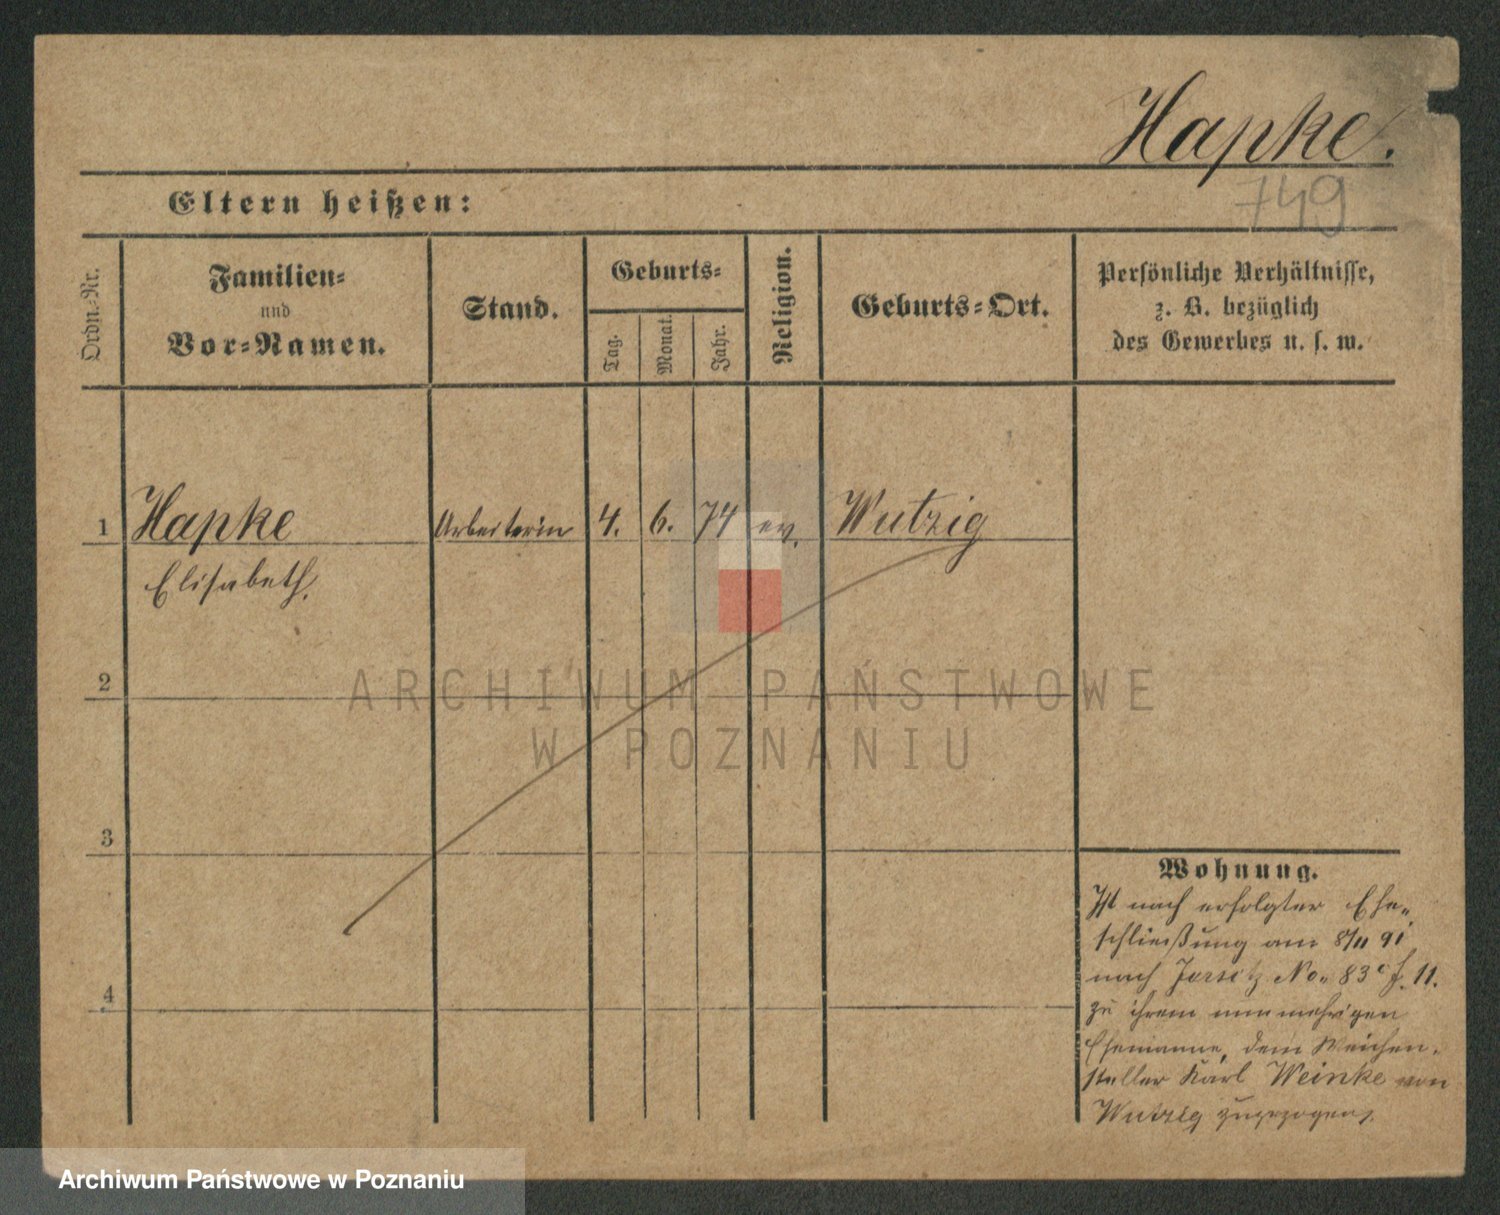 Hapke.
749
Eltern heißen:
Ordn.-Nr.
Familien-
und
Vor-Namen.
Stand.
Geburts-
Tag.
Monat.
Jahr.
Religion.
Geburts-Ort.
Persönliche Verhältnisse,
z. B. bezüglich
des Gewerbes u. s. w.
1 Hapke Arbeiterin 4. 6. 74 ev. Wutzig
Elisabeth.
2
3
4
Wohnung.
Ist nach erfolgter Ehe-
schließung am 8/11 91
nach Jersitz No. 83c f. 11.
zu ihrem nunmehrigen
Ehemanne, dem Weichen-
steller Karl Weinke von
Wutzig zugezogen.
ARCHIWUM PAŃSTWOWE
W POZNANIU
Archiwum Państwowe w Poznaniu